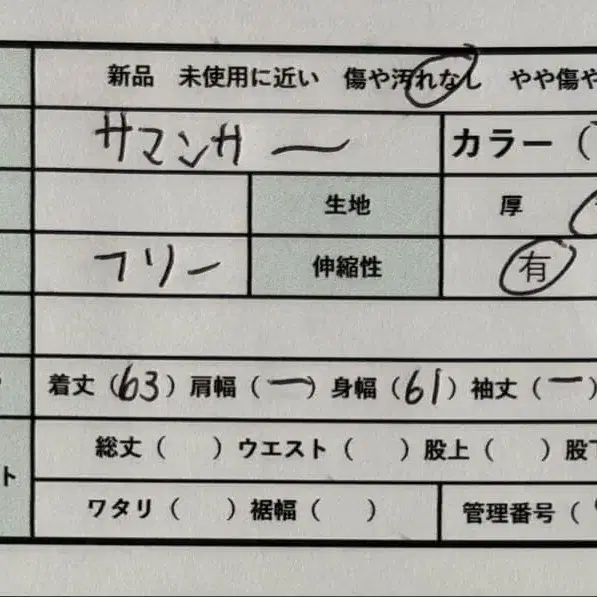 新品 未使用に近い 傷や汚れなし やや傷や
サマンサ ー カラー（
生地 厚
フリー 伸縮性 有
着丈（63）肩幅（ー）身幅（61）袖丈（ー）
総丈（ ）ウエスト（ ）股上（ ）股下
ト
ワタリ（ ）裾幅（ ） 管理番号（